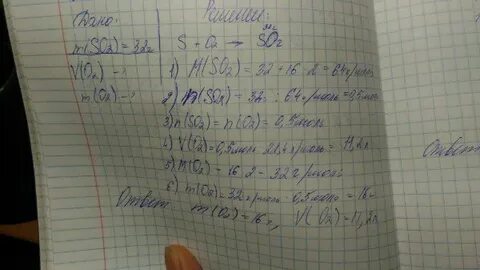 Дано:
Решение:
m(SO2) = 32г
V(O2) - ?
m(O2) - ?
32г
S + O2 → SO2
1) M(SO2) = 32 + 16 · 2 = 64 г/моль
2) n(SO2) = 32г : 64 г/моль = 0,5 моль
3) n(SO2) = n(O2) = 0,5 моль
4) V(O2) = 0,5 моль · 22,4 г/моль = 11,2л
5) M(O2) = 16 · 2 = 32 г/моль
6) m(O2) = 32 г/моль · 0,5 моль = 16г
Ответ m(O2) = 16г, V(O2) = 11,2л
Ответ